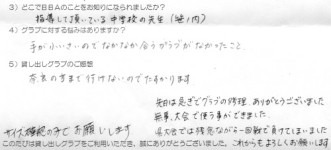 3）どこでBBAのことをお知りになられましたか？
指導して頂いている中学校の先生（堀ノ内）
4）グラブに対する悩みはありますか？
手が小さいのでなかなか合うグラブがなかったこと
5）貸し出しグラブのご感想
奈良のまで行けないのでたすかります
先日は急ぎでグラブの修理、ありがとうございました
無事、大会で使う事ができました。
サイズ確認の子でお願いします
県大会では残念ながら一回戦で負けてしまいました
このたびは貸し出しグラブをご利用いただき、誠にありがとうございました。これからもよろしくお願いします